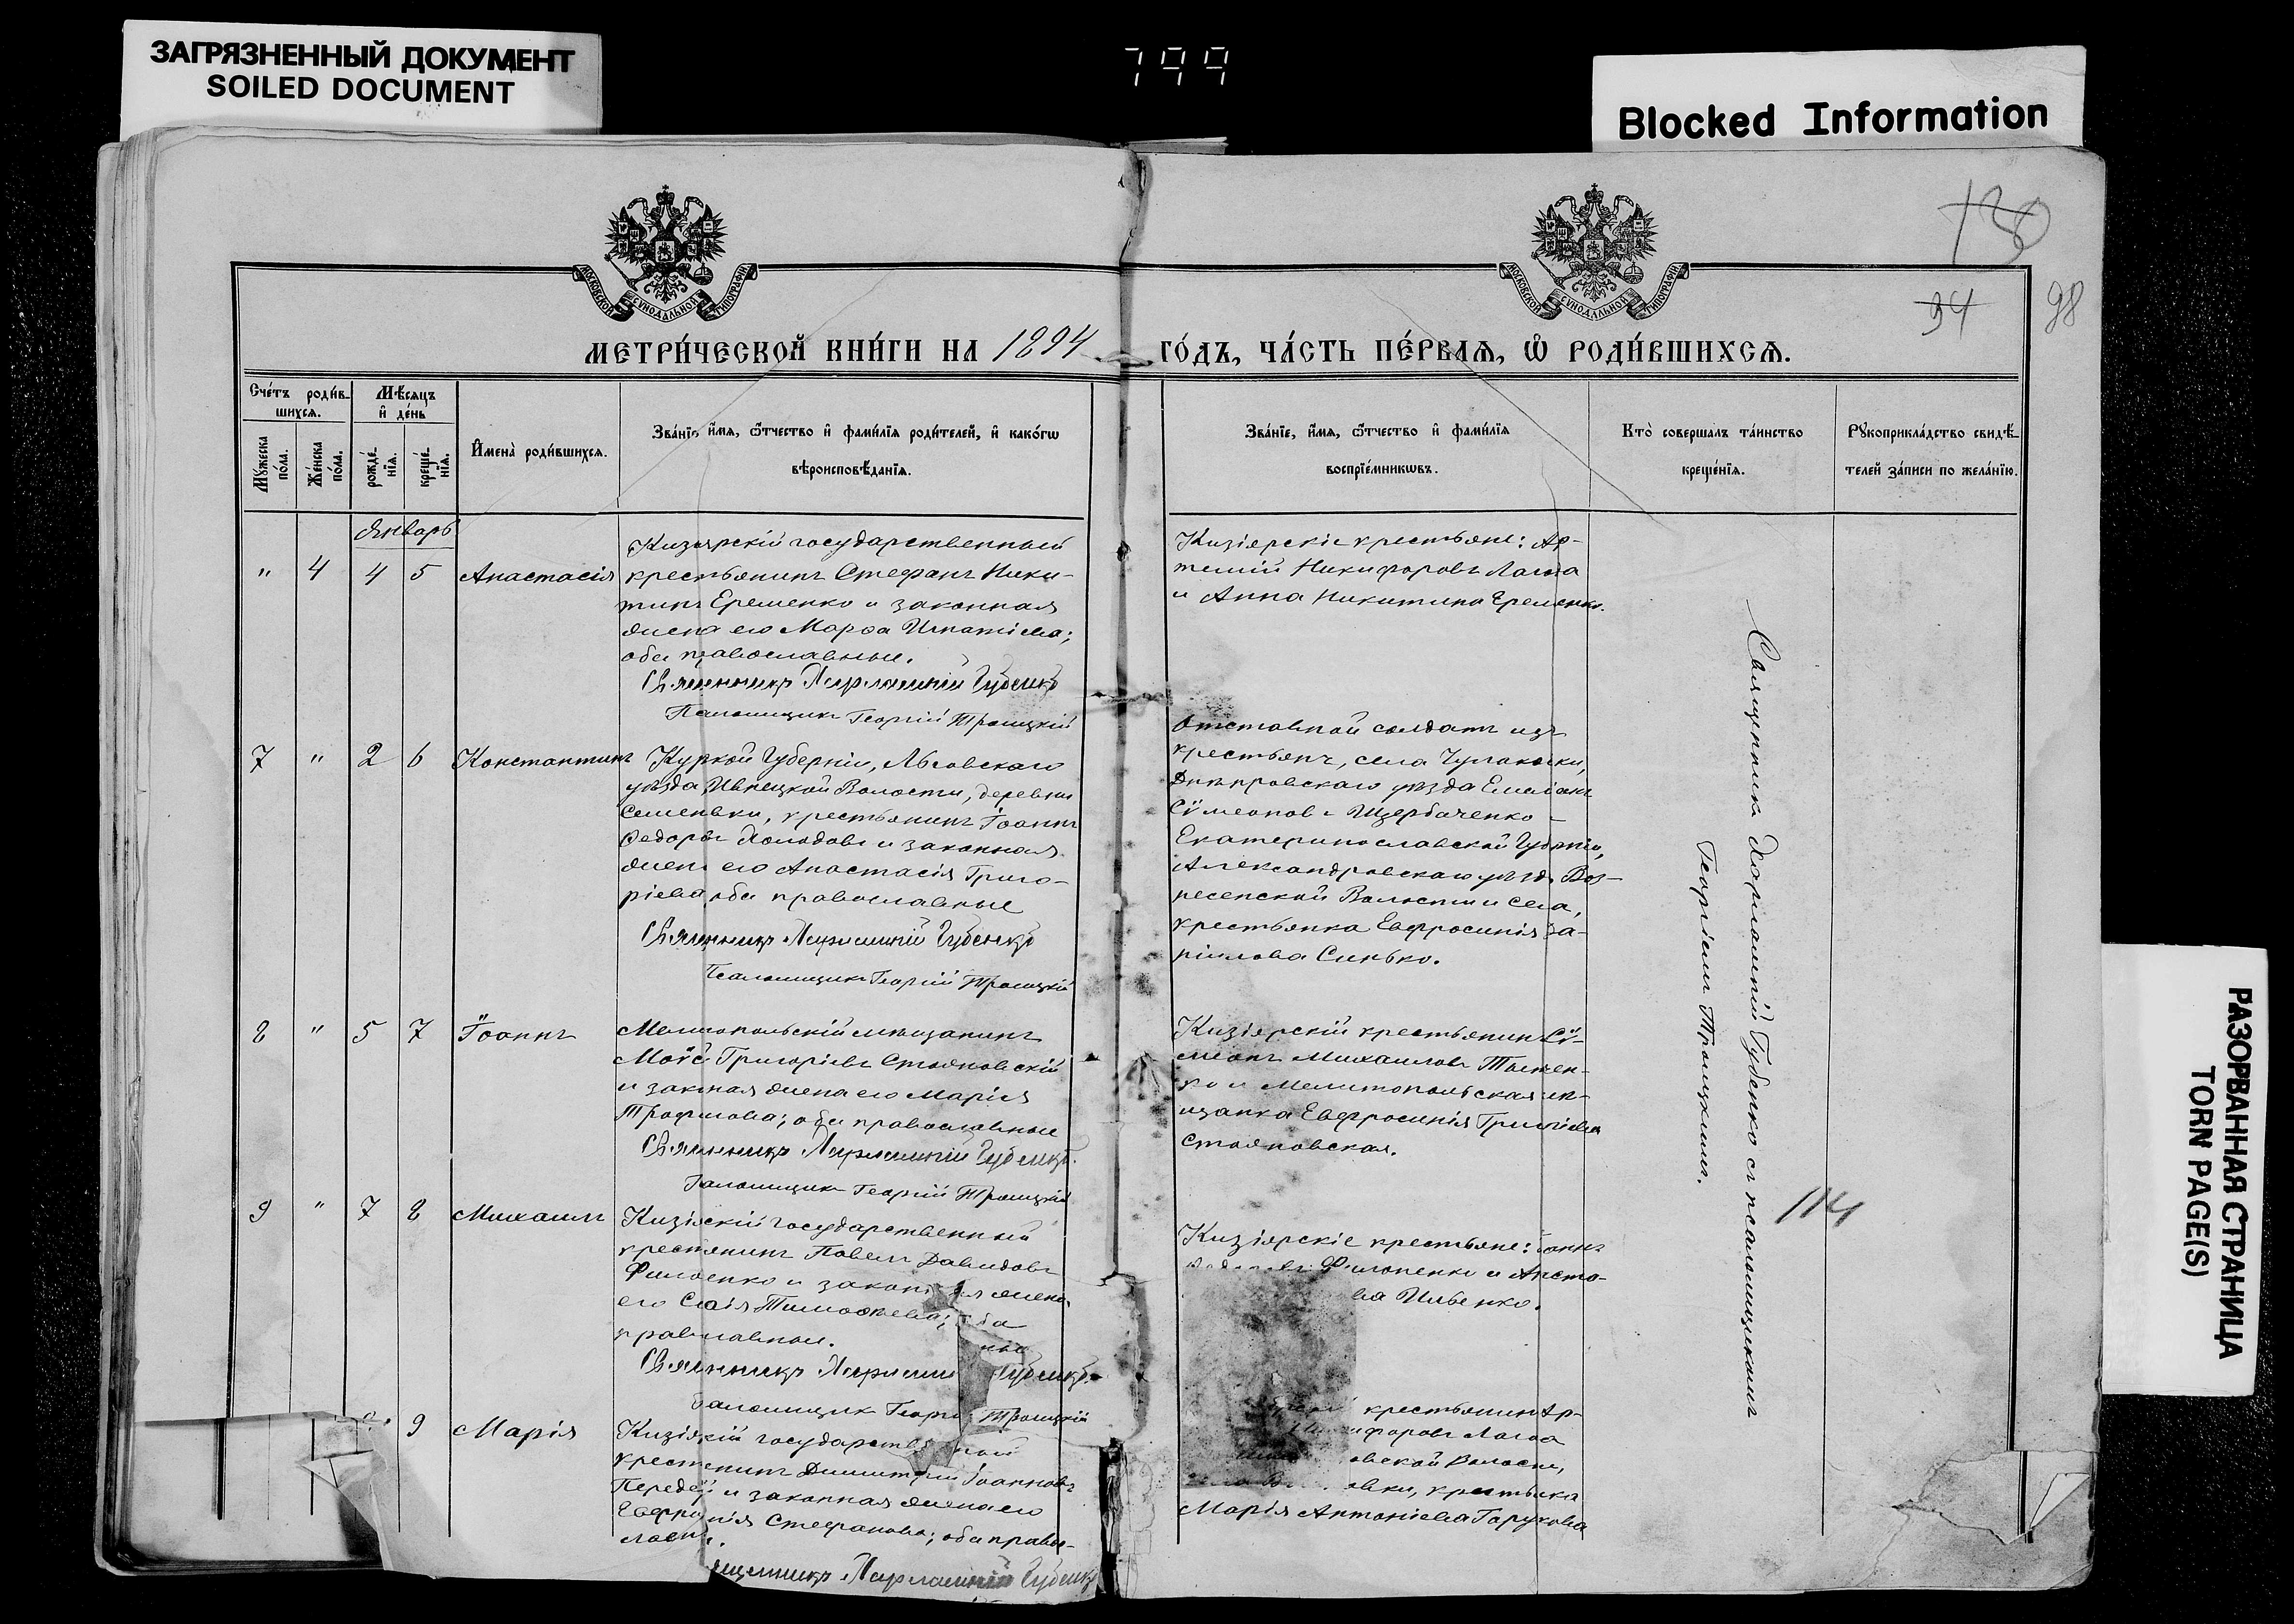 ЗАГРЯЗНЕННЫЙ ДОКУМЕНТ
SOILED DOCUMENT
799
Blocked Information
130
94
98
МОСКОВСКОЙ СѴНОДАЛЬНОЙ ТИПОГРАФІИ
МОСКОВСКОЙ СѴНОДАЛЬНОЙ ТИПОГРАФІИ
МЕТРИ́ЧЕСКОЙ КНИ́ГИ НА 1894
ГО́ДЪ, ЧА́СТЬ ПЕ́РВАЯ, Ѡ РОДИ́ВШИХСЯ.
Сче́тъ роди́в-
шихся.
Мѣ́сяцъ
и҆ де́нь
Мꙋ́жеска по́ла.
Же́нска по́ла.
рожде́-
нїя.
креще́-
нїя.
И҆мена̀ роди́вшихся.
Зва́нїе, и҆́мя, ѻ҆́тчество и҆ фами́лїя роди́телей, и҆ како́гѡ
вѣроисповѣ́данїя.
Зва́нїе, и҆́мя, ѻ҆́тчество и҆ фами́лїя
воспрїе́мникѡвъ.
Кто̀ соверша́лъ та́инство
креще́нїя.
Рꙋкоприкла́дство свидѣ́-
телей за́писи по жела́нїю.
Январь
" 4 4 5 Анастасія
Кизіярскій государственный
крестьянинъ Стефанъ Ники-
тинъ Еременко и законная
жена его Марѳа Игнатіева;
оба православные.
Священникъ Харлампій Губенко
Псаломщикъ Георгій Троицкій
Кизіярскіе крестьяне: Ар-
темій Никифоровъ
и Анна Никитина Еременко.
7 " 2 6 Константинъ
Курской Губерніи, Льговскаго
уѣзда, Ивницкой Волости, деревни
Семеновки, крестьянинъ Іоаннъ
Ѳедоровъ Холодовъ и законная
жена его Анастасія Григо-
ріева, оба православные
Священникъ Харлампій Губенко
Псаломщикъ Георгій Троицкій
Отставной солдатъ изъ
крестьянъ, села Чулаковки,
Днѣпровскаго уѣзда Емеліанъ
Сѵмеоновъ Щербаченко
Екатеринославской Губерніи,
Александровскаго уѣзда Воз-
несенской Волости и села,
крестьянка Евфросинія
Синько.
8 " 5 7 Іоаннъ
Мелитопольскій мѣщанинъ
Моѵсей Григоріевъ Стояновскій
и законная жена его Марія
Трофимова; оба православные
Священникъ Харлампій Губенко.
Псаломщикъ Георгій Троицкій
Кизіярскій крестьянинъ Сѵ-
меонъ Михаиловъ
и Мелитопольская мѣ-
щанка Евфросинія Григоріева
Стояновская.
9 " 7 8 Михаилъ
Кизіярскій государственный
крестьянинъ Павелъ Давидовъ
и законная жена
его Тимоѳеева; оба
православные.
Священникъ Харлампій Губенко.
Псаломщикъ Георгій Троицкій
Кизіярскіе крестьяне: Іоаннъ
Филоненко и Анаста-
Ильенко.
9 Марія
Кизіярскій государственный
крестьянинъ Димитрій Іоанновъ
и законная жена его
Евфросинія Стефанова; оба право-
славные.
Священникъ Харлампій Губенко
крестьянинъ Ар-
Никифоровъ
Волости,
крестьянка
Марія Антоніева
Священникъ Харлампій Губенко съ псаломщикомъ
Георгіемъ Троицкимъ.
114
РАЗОРВАННАЯ СТРАНИЦА
TORN PAGE(S)